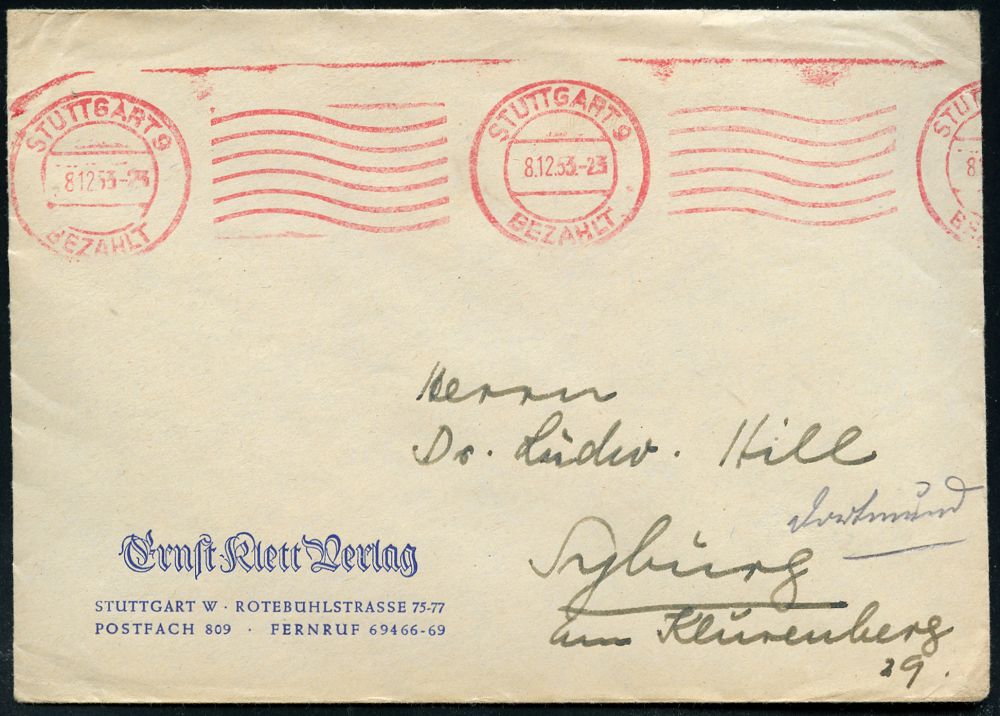 STUTTGART 9
8.12.53-23
BEZAHLT
STUTTGART 9
8.12.53-23
BEZAHLT
STUT
8
BE
Herrn
Dr. Ludw. Hill
Dortmund
Syburg
am Klusenberg
29.
Ernst Klett Verlag
STUTTGART W · ROTEBÜHLSTRASSE 75-77
POSTFACH 809 · FERNRUF 69466-69